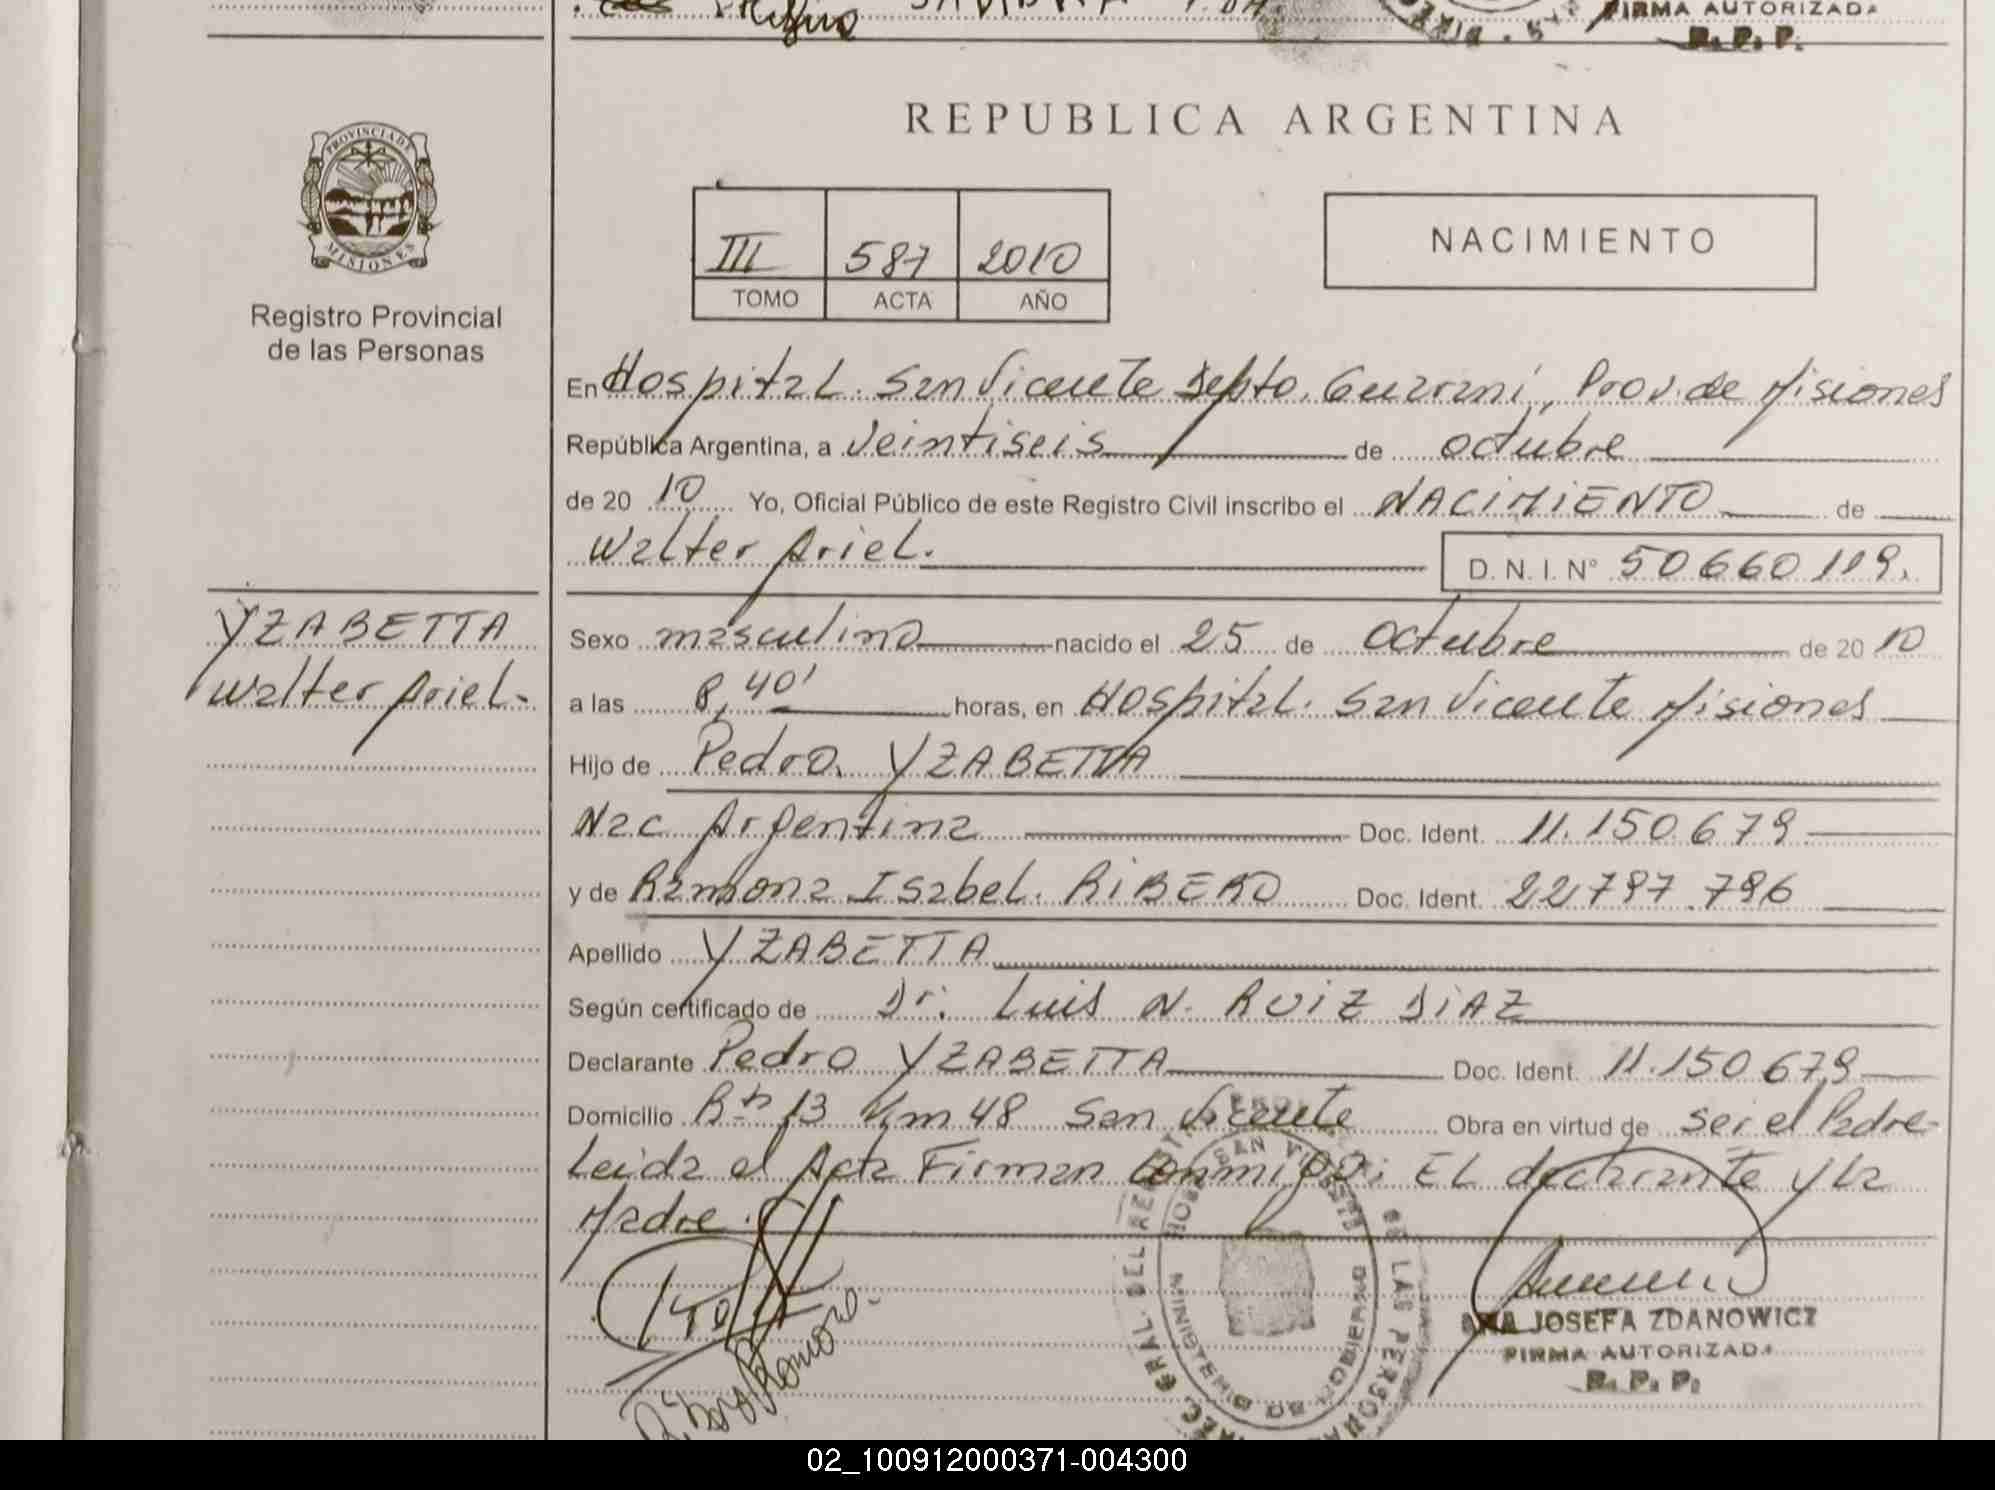 FIRMA AUTORIZADA
R. P. P.
PROVINCIA DE
MISIONES
Registro Provincial
de las Personas
REPUBLICA ARGENTINA
III 587 2010
TOMO ACTA AÑO
NACIMIENTO
En Hospital. San Vicente Depto. Guarani, Prov. de Misiones
República Argentina, a Veintiseis de octubre
de 20 10 Yo, Oficial Público de este Registro Civil inscribo el NACIMIENTO de
Walter Ariel.
D. N. I. N° 50660119.
YZABETTA
Walter Ariel.
Sexo masculino nacido el 25 de Octubre de 20 10
a las 8,40' horas, en Hospital. San Vicente Misiones
Hijo de Pedro. YZABETTA
Nac Argentina Doc. Ident. 11.150.679
y de Ramona Isabel. RIBERO Doc. Ident. 22797.796
Apellido YZABETTA
Según certificado de Dr. Luis N. RUIZ DIAZ
Declarante Pedro YZABETTA Doc. Ident. 11.150.679
Domicilio Rta 13 Km 48 San Vicente Obra en virtud de ser el Padre
Leida el Acta Firman Conmigo: EL declarante y La
Madre.
ANA JOSEFA ZDANOWICZ
FIRMA AUTORIZADA
R. P. P.
02_100912000371-004300